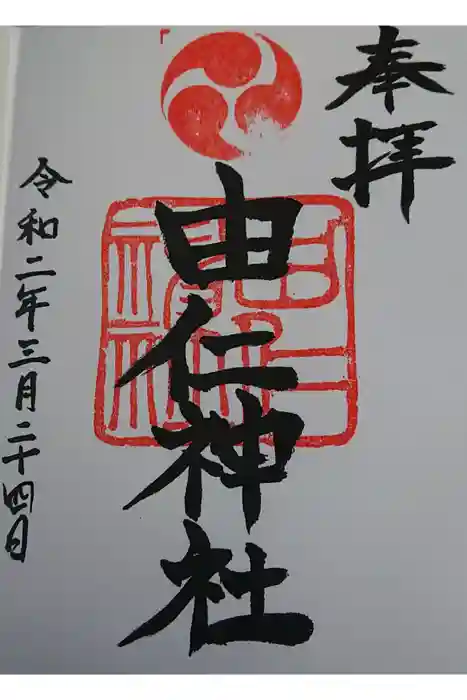 奉拝
由仁神社
令和二年三月二十四日